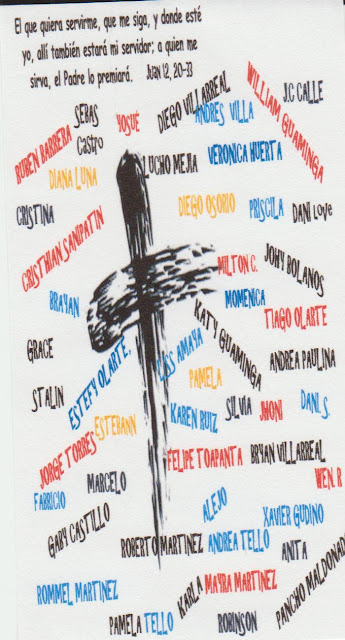 El que quiera servirme, que me siga, y donde esté
yo, allí también estará mi servidor; a quien me
sirva, el Padre lo premiará. JUAN 12, 20-33
RUBEN BARRERA
SEBAS
Castro
YOSUE
DIEGO VILLARREAL
ANDRES VILLA
WILLIAM GUAMINGA
J.C CALLE
DIANA LUNA
LUCHO MEJIA
VERONICA HUERTA
CRISTINA
DIEGO OSORIO
PRISCILA
DANI LOVE
CRISTHIAN SANIPATIN
MILTON C.
JOHY BOLANOS
BRAYAN
MOMENICA
TIAGO OLARTE
GRACE
ESTEFY OLARTE
AMAYA
KATY GUAMINGA
ANDREA PAULINA
STALIN
PAMELA
ESTEBANN
KAREN RUIZ
SILVIA
JHONI
DANI. S.
JORGE TORRES
FELIPE TOAPANTA
BRYAN VILLARREAL
WEN. R
FABRICIO
MARCELO
ALEJO
XAVIER GUDINO
GABY CASTILLO
ROBERTO MARTINEZ
ANDREA TELLO
ANITA
PANCHO MALDONADO
ROMMEL MARTINEZ
KARLA
MAYRA MARTINEZ
PAMELA TELLO
ROBINSON